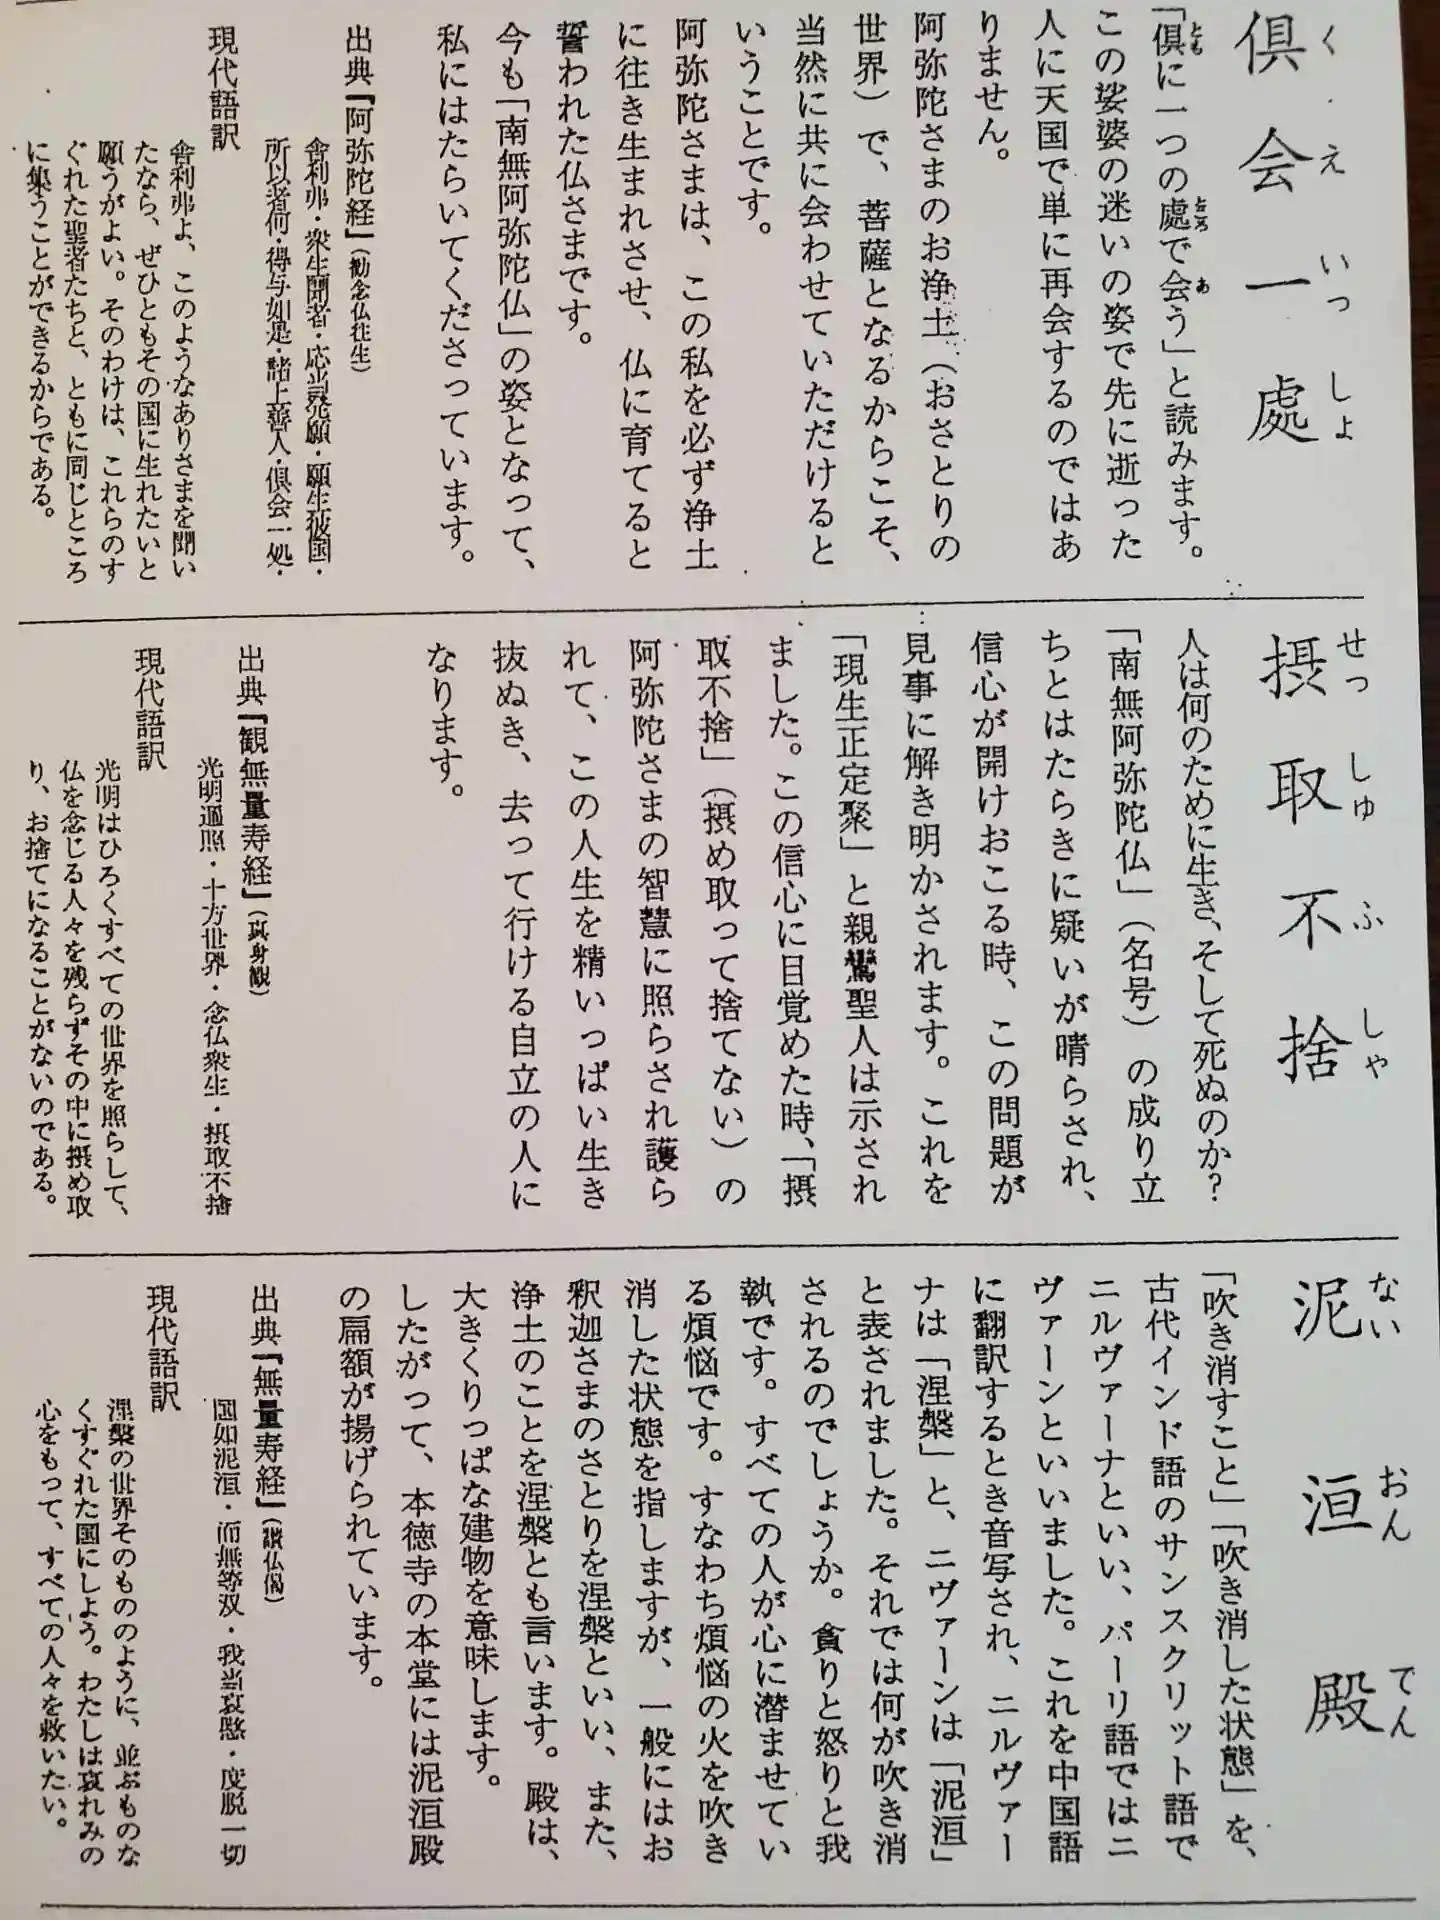 倶会一處
くえいっしょ
「倶に一つの處で会う」と読みます。
とも
ところ
あ
この娑婆の迷いの姿で先に逝った
人に天国で単に再会するのではあ
りません。
阿弥陀さまのお浄土（おさとりの
世界）で、菩薩となるからこそ、
当然に共に会わせていただけると
いうことです。
阿弥陀さまは、この私を必ず浄土
に往き生まれさせ、仏に育てると
誓われた仏さまです。
今も「南無阿弥陀仏」の姿となって、
私にはたらいてくださっています。
出典『阿弥陀経』（勧念仏往生）
舎利弗・衆生聞者・応当発願・願生彼国・
所以者何・得与如是・諸上善人・倶会一処・
現代語訳
舎利弗よ、このようなありさまを聞い
たなら、ぜひともその国に生れたいと
願うがよい。そのわけは、これらのす
ぐれた聖者たちと、ともに同じところ
に集うことができるからである。
摂取不捨
せっしゅふしゃ
人は何のために生き、そして死ぬのか？
「南無阿弥陀仏」（名号）の成り立
ちとはたらきに疑いが晴らされ、
信心が開けおこる時、この問題が
見事に解き明かされます。これを
「現生正定聚」と親鸞聖人は示され
ました。この信心に目覚めた時、「摂
取不捨」（摂め取って捨てない）の
阿弥陀さまの智慧に照らされ護ら
れて、この人生を精いっぱい生き
抜ぬき、去って行ける自立の人に
なります。
出典『観無量寿経』（真身観）
光明遍照・十方世界・念仏衆生・摂取不捨
現代語訳
光明はひろくすべての世界を照らして、
仏を念じる人々を残らずその中に摂め取
り、お捨てになることがないのである。
泥洹殿
ないおんでん
「吹き消すこと」「吹き消した状態」を、
古代インド語のサンスクリット語で
ニルヴァーナといい、パーリ語ではニ
ヴァーンといいました。これを中国語
に翻訳するとき音写され、ニルヴァー
ナは「涅槃」と、ニヴァーンは「泥洹」
と表されました。それでは何が吹き消
されるのでしょうか。貪りと怒りと我
執です。すべての人が心に潜ませてい
る煩悩です。すなわち煩悩の火を吹き
消した状態を指しますが、一般にはお
釈迦さまのさとりを涅槃といい、また、
浄土のことを涅槃とも言います。殿は、
大きくりっぱな建物を意味します。
したがって、本徳寺の本堂には泥洹殿
の扁額が揚げられています。
出典『無量寿経』（讃仏偈）
国如泥洹・而無等双・我当哀愍・度脱一切
現代語訳
涅槃の世界そのもののように、並ぶものな
くすぐれた国にしよう。わたしは哀れみの
心をもって、すべての人々を救いたい。